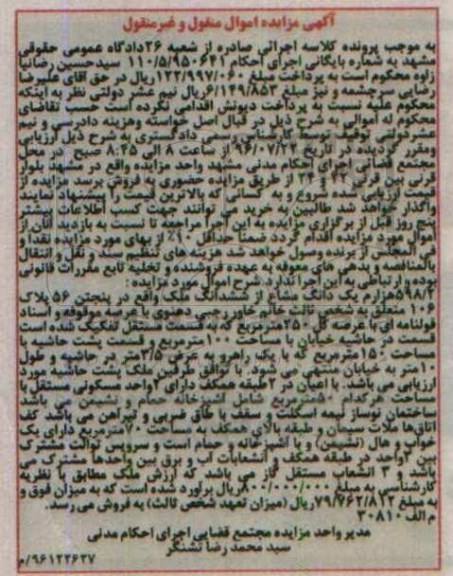 آگهی مزایده اموال منقول و غیرمنقول
به موجب پرونده کلاسه اجرائی صادره از شعبه ۲۶ دادگاه عمومی حقوقی
مشهد به شماره بایگانی اجرای احکام ۱۱۰/۵/۹۵۰۶۴۱ سیدحسین رضانیا
زاوه محکوم است به پرداخت مبلغ ۱۲۲/۹۹۷/۰۶۰ ریال در حق آقای علیرضا
رضایی سرچشمه و نیز مبلغ ۶/۱۴۹/۸۵۳ ریال نیم عشر دولتی نظر به اینکه
محکوم علیه نسبت به پرداخت دیونش اقدامی نکرده است حسب تقاضای
محکوم له اموالی به شرح ذیل در قبال اصل خواسته وهزینه دادرسی و نیم
عشر دولتی توقیف توسط کارشناس رسمی دادگستری به شرح ذیل ارزیابی
ومقرر گردیده در تاریخ ۹۶/۰۷/۲۲ از ساعت ۸ الی ۸:۴۵ صبح در محل
مجتمع قضائی اجرای احکام مدنی مشهد واحد مزایده واقع در مشهد بلوار
قرنی بین قرنی ۲۲ و ۲۴ از طریق مزایده حضوری به فروش برسد مزایده از
قیمت ارزیابی شده شروع و به کسانی که بالاترین قیمت را پیشنهاد نمایند
واگذار خواهد شد طالبین به خرید می توانند جهت کسب اطلاعات بیشتر
پنج روز قبل از برگزاری مزایده به این اجرا مراجعه تا نسبت به بازدید آنان از
اموال مورد مزایده اقدام گردد ضمناً حداقل ۱۰٪ از بهای مورد مزایده نقداً و
فی المجلس از برنده وصول خواهد شد هزینه های تنظیم سند و نقل و انتقال
بالمناصفه و بدهی های معوقه به عهده فروشنده و تخلیه تابع مقررات قانونی
بوده و ارتباطی به این اجرا ندارد. شرح اموال مورد مزایده :
۵۹۸/۲ هزارم یک دانگ مشاع از ششدانگ ملک واقع در پنجتن ۵۶ پلاک
۱۰۶ متعلق به شخص ثالث خانم خاور رجبی دهنوی با عرصه موقوفه و اسناد
قولنامه ای با عرصه کل ۲۵۰ مترمربع که به قسمت مستقل تفکیک شده است
قسمت در حاشیه خیابان با مساحت ۱۰۰ مترمربع و قسمت پشت حاشیه با
مساحت ۱۵۰ مترمربع که با یک راهرو به عرض ۲/۵ متر در حاشیه و طول
۱۰ متر به خیابان منتهی می شود. با توافق طرفین ملک پشت حاشیه مورد
ارزیابی می باشد. با اعیان در ۲ طبقه همکف دارای ۲ واحد مسکونی مستقل با
مساحت هرکدام ۵۰ مترمربع شامل آشپزخانه حمام و نشیمن می باشد
ساختمان نوساز نیمه اسکلت و سقف با طاق ضربی و تیرآهن می باشد کف
اتاق‌ها ملات سیمان و طبقه بالای همکف به مساحت ۷۰ مترمربع دارای یک
خواب و هال (نشیمن) و با آشپزخانه و حمام است و سرویس توالت مشترک
بین ۲ واحد در طبقه همکف و انشعابات آب و برق بین واحدها مشترک می
باشد و ۳ انشعاب مستقل گاز می باشد که ارزش ملک مطابق با نظریه
کارشناسی به مبلغ ۸۰۰/۰۰۰/۰۰۰ ریال برآورد شده است که به میزان فوق و
به مبلغ ۷۹/۷۶۲/۸۱۳ ریال (میزان تعهد شخص ثالث) به فروش می رسد.
م الف ۳۰۸۱۰
مدیر واحد مزایده مجتمع قضایی اجرای احکام مدنی
سید محمد رضا تشنگر
۹۶۱۲۲۶۳۷/م